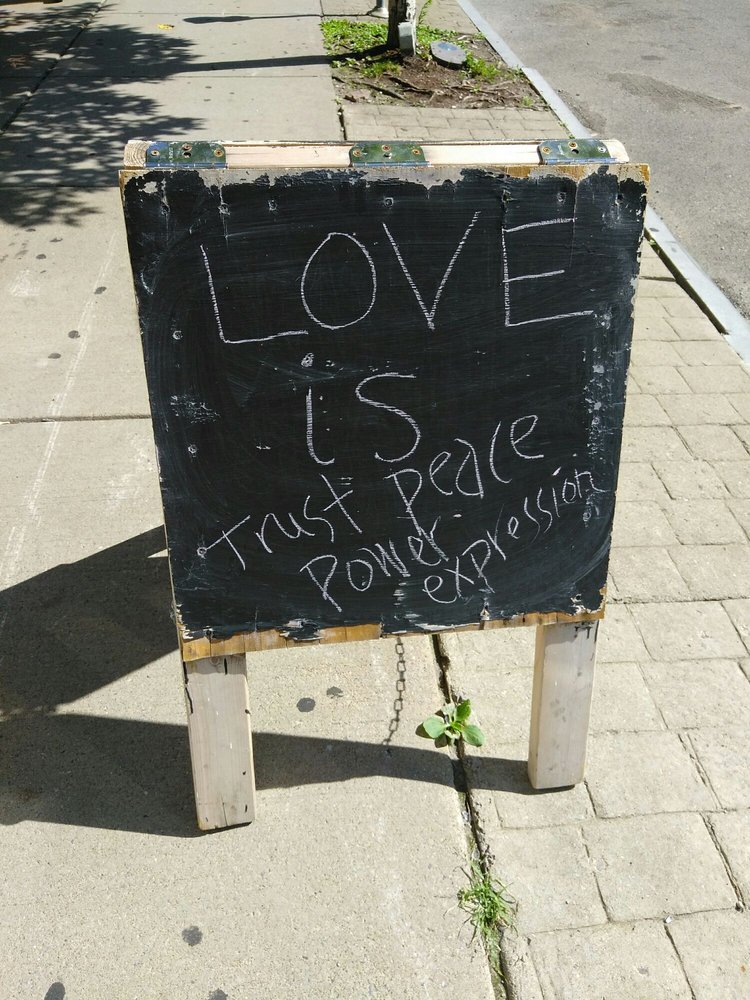 LOVE
is
Trust peace
Power expression